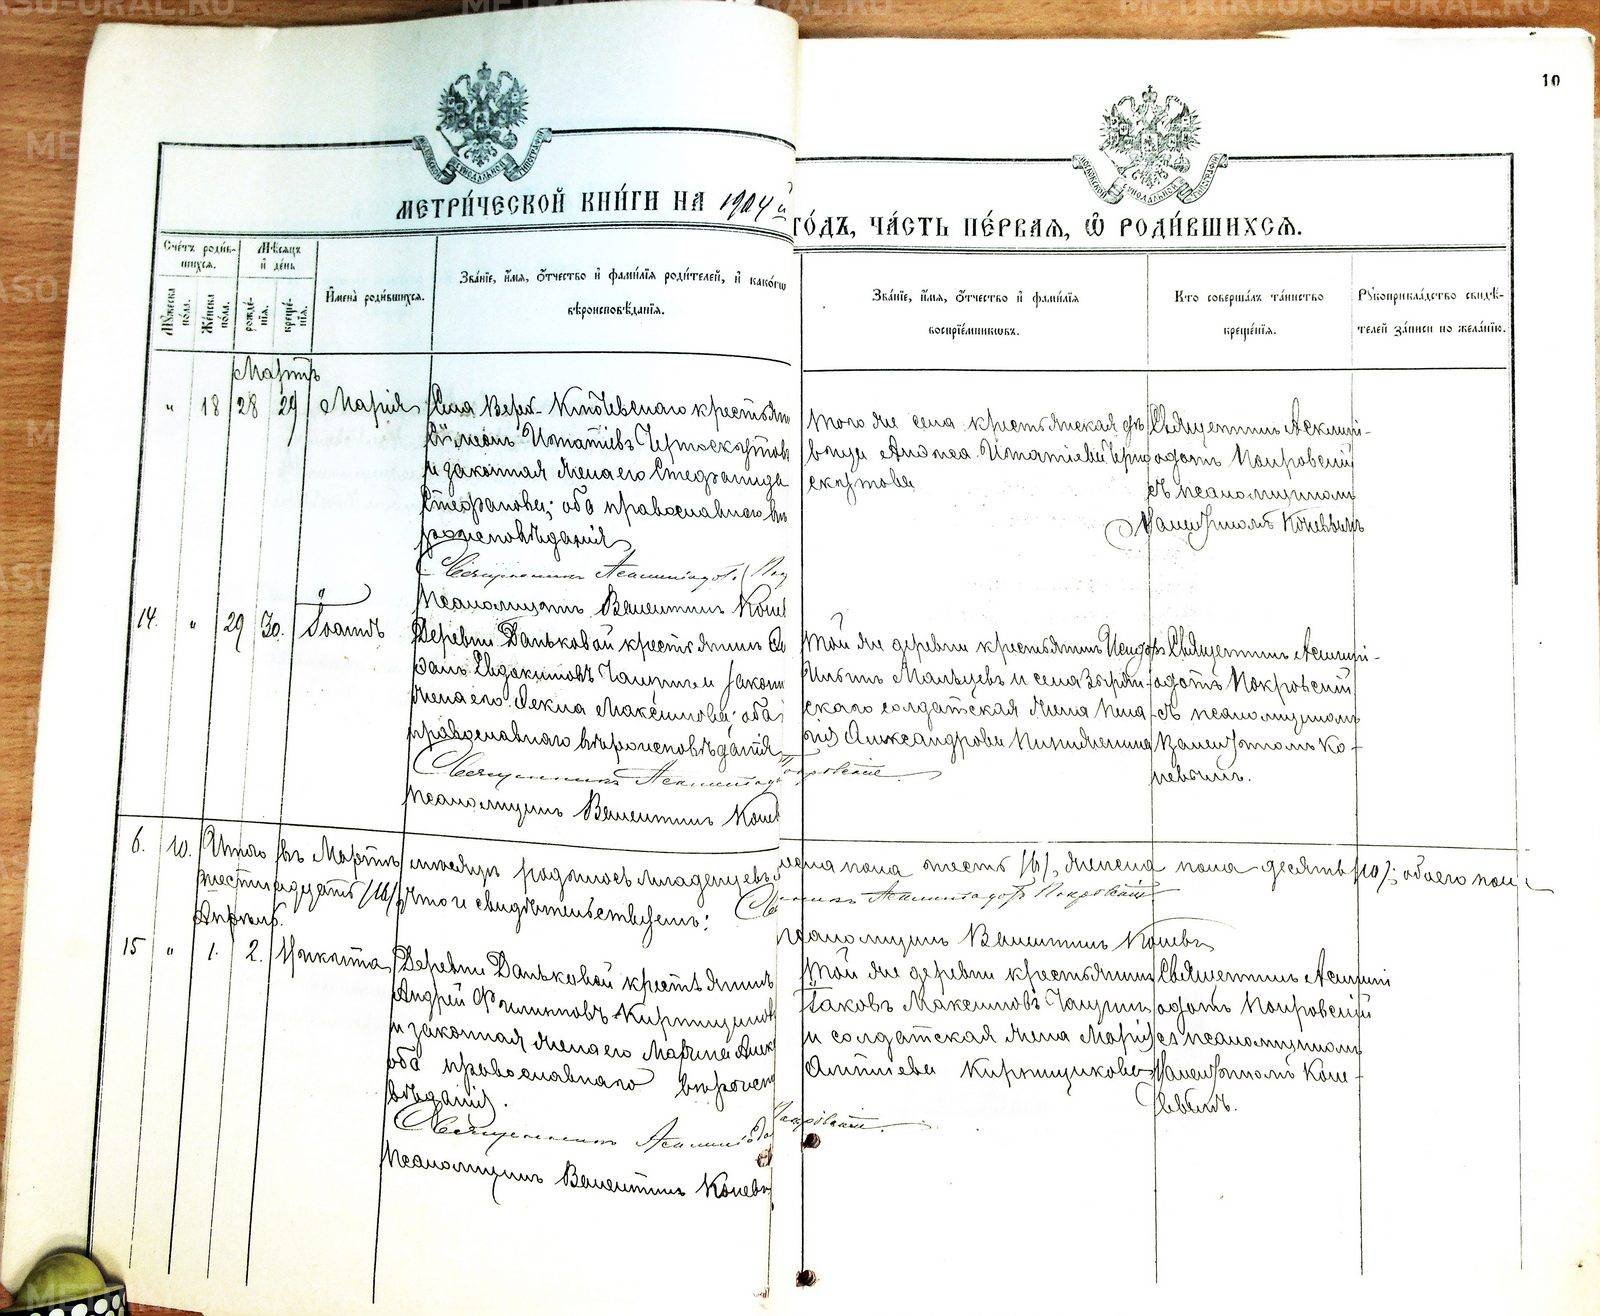 METRIKI.GASU-URAL.RU
10
МОСКОВСКОЙ СУНОДАЛЬНОЙ ТИПОГРАФІИ
МЕТРИ́ЧЕСКОЙ КНИ́ГИ НА 1904 й
ГО́ДЪ, ЧА́СТЬ ПЕ́РВАЯ, Ѿ РОДИ́ВШИХСЯ.
Сче́тъ роди́вшихся.
Мѣ́сяцъ и҆ де́нь
Му́жеска по́ла.
Же́нска по́ла.
рожде́нїя.
креще́нїя.
И҆мена̀ роди́вшихся.
Зва́нїе, и҆́мя, ѻ҆́тчество и҆ фамі́лїя роди́телей, и҆ како́гѡ
вѣроисповѣ́данїя.
Зва́нїе, и҆́мя, ѻ҆́тчество и҆ фамі́лїя
воспрїе́мниковъ.
Кто̀ соверша́лъ та́инство
креще́нїя.
Рукоприкла́дство свидѣ́-
телей за́писи по жела́нїю.
Мартъ
" 18 28 29 Марія
Села Верх-Ключевскаго крестьян
Игнатіевъ Черноскутовъ
и законная жена его Стефанида
Стефанова; оба православнаго вѣ
роисповѣданія
Священникъ Асклипіодотъ Пок
Псаломщикъ Валентинъ Коне
того же села крестьянская дѣ
вица Игнатіева Черно
скутова
Священникъ Асклипі-
одотъ Покровскій
съ псаломщикомъ
Валентиномъ Коневымъ
14. " 29 30. Іоаннъ
Деревни Даньковой крестьянинъ
Евдокимовъ Чащинъ и закон
жена его Фекла Максимова; оба
православнаго вѣроисповѣданія
Священникъ Асклипіодотъ Покровскій
Псаломщикъ Валентинъ Коне
той же деревни крестьянинъ Исидоръ
Мальцевъ и села Зырян-
скаго солдатская жена Пела-
гія Александрова
Священникъ Асклипі-
одотъ Покровскій
съ псаломщикомъ
Валентиномъ Ко-
невымъ.
6. 10. Итого въ Мартѣ мѣсяцѣ родилось младенцевъ мужеска пола шесть /6/, женска пола десять /10/; обоего пола
шестнадцать /16/ Что и свидѣтельствуемъ: Священникъ Асклипіодотъ Покровскій
Псаломщикъ Валентинъ Коневъ
Апрѣль.
15 " 1. 2. Никита
Деревни Даньковой крестьянинъ
Андрей Филипповъ Кирпищиковъ
и законная жена его Марина Алек
оба православнаго вѣроиспо
вѣданія.
Священникъ Асклипіодотъ Покровскій
Псаломщикъ Валентинъ Коневъ
Той же деревни крестьянинъ
Іаковъ Максимовъ Чащинъ
и солдатская жена Марія
Антіпева Кирпищикова
Священникъ Асклипі
одотъ Покровскій
съ псаломщикомъ
Валентиномъ Коне-
вымъ.